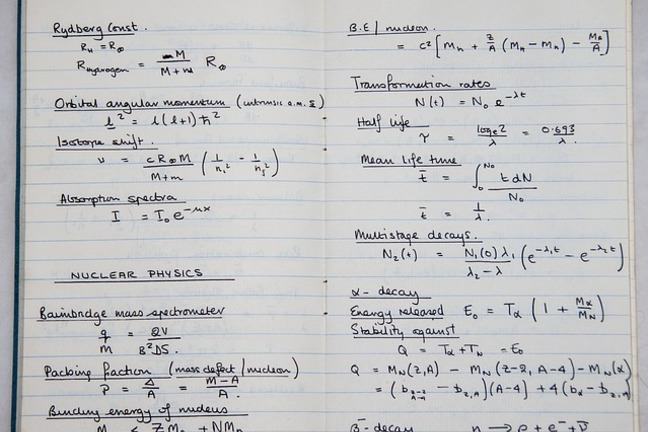 Rydberg Const.
R_H = R_∞
R_Hydrogen = M / (M + m) R_∞
Orbital angular momentum (intrinsic a.m. s)
l² = l(l+1)ħ²
Isotope shift.
ν = cR_∞M / (M+m) (1/n_i² - 1/n_f²)
Absorption spectra
I = I₀e^(-μx)
NUCLEAR PHYSICS
Bainbridge mass spectrometer
q/m = 2V / B²DS.
Packing fraction (mass defect/nucleon)
P = Δ/A = (M-A)/A.
Binding energy of nucleus
M < ZM + NM
B.E/nucleon.
= c² [M_n + Z/A (M_H - M_n) - M_A/A]
Transformation rates
N(t) = N₀ e^(-λt)
Half life
τ = log_e 2 / λ = 0.693 / λ.
Mean life time
t̄ = ∫₀^N₀ t dN / N₀
t̄ = 1/λ.
Multistage decays.
N₂(t) = N₁(0)λ₁ / (λ₂-λ) (e^(-λ₁t) - e^(-λ₂t))
α-decay
Energy released E₀ = T_α (1 + M_α/M_N)
Stability against
Q = T_α + T_N = E₀
Q = M_N(Z,A) - M_N(Z-2,A-4) - M_N(α)
= (b_(Z-2,A-4) - b_Z,A)(A-4) + 4(b_α - b_Z,A)
β⁻-decay n → p + e⁻ + ν̄